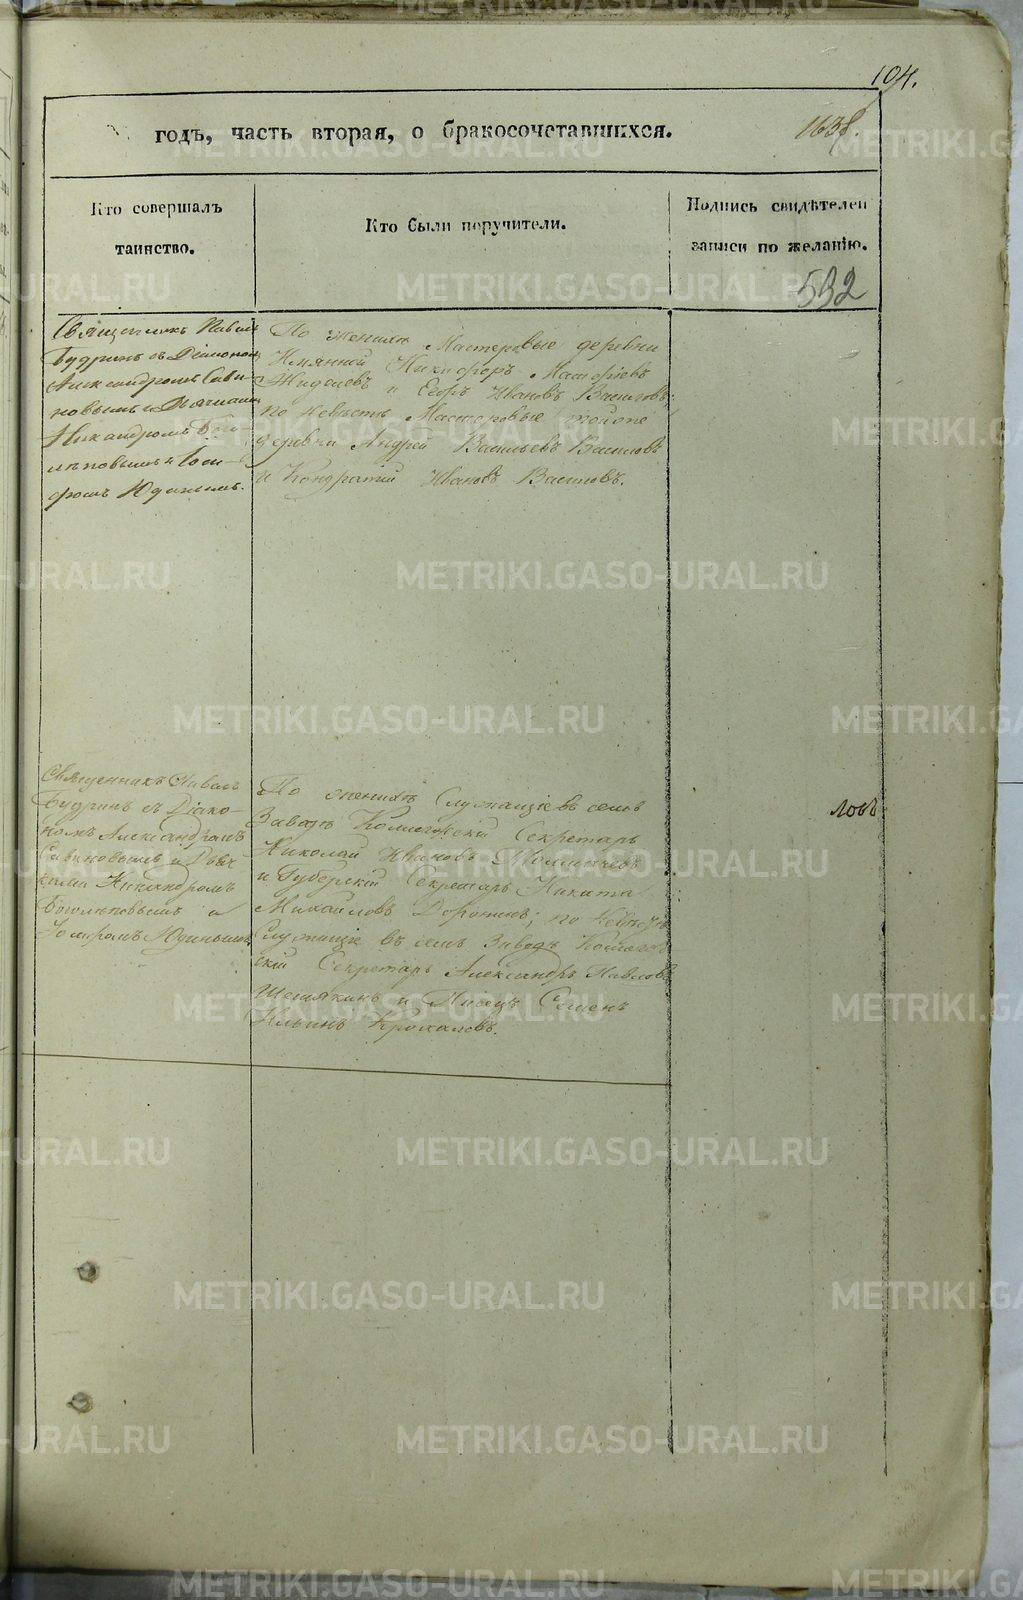 104.
годъ, часть вторая, о бракосочетавшихся.
Кто совершалъ
таинство.
Кто были поручители.
Подпись свидѣтелей
записи по желанію.
532
Священникъ Павелъ
Будринъ съ Діакономъ
Александромъ Сави-
новымъ и Дьячками
Никандромъ Бого-
лѣповымъ и Іоси-
фомъ Юдинымъ.
По женихѣ Мастеровые деревни
Никифоръ
и Егоръ Ивановъ
по невѣстѣ Мастеровые тойже
деревни Андрей Васильевъ
и Кондратій Ивановъ
Священникъ Павелъ
Будринъ съ Діако-
номъ Александромъ
Савиновымъ и Дьяч-
ками Никандромъ
Боголѣповымъ и
Юдинымъ
По женихѣ Служащіе въ семъ
Заводѣ Секретарь
Николай Ивановъ
и Губерскій Секретарь Никита
Михайловъ Доронинъ; по невѣстѣ
Служащіе въ семъ Заводѣ
скій Секретарь Александръ Павловъ
Шешякинъ и Писецъ Семенъ
Ильинъ Крохалевъ.
ловъ
METRIKI.GASO-URAL.RU